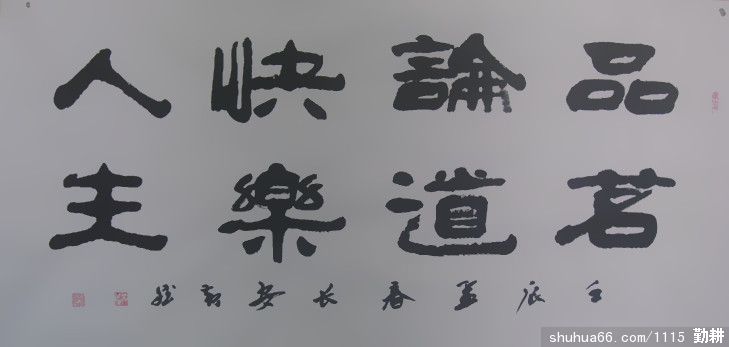 品茗
論道
快樂
人生
壬辰孟春长安
shuhua66.com/1115 勤耕